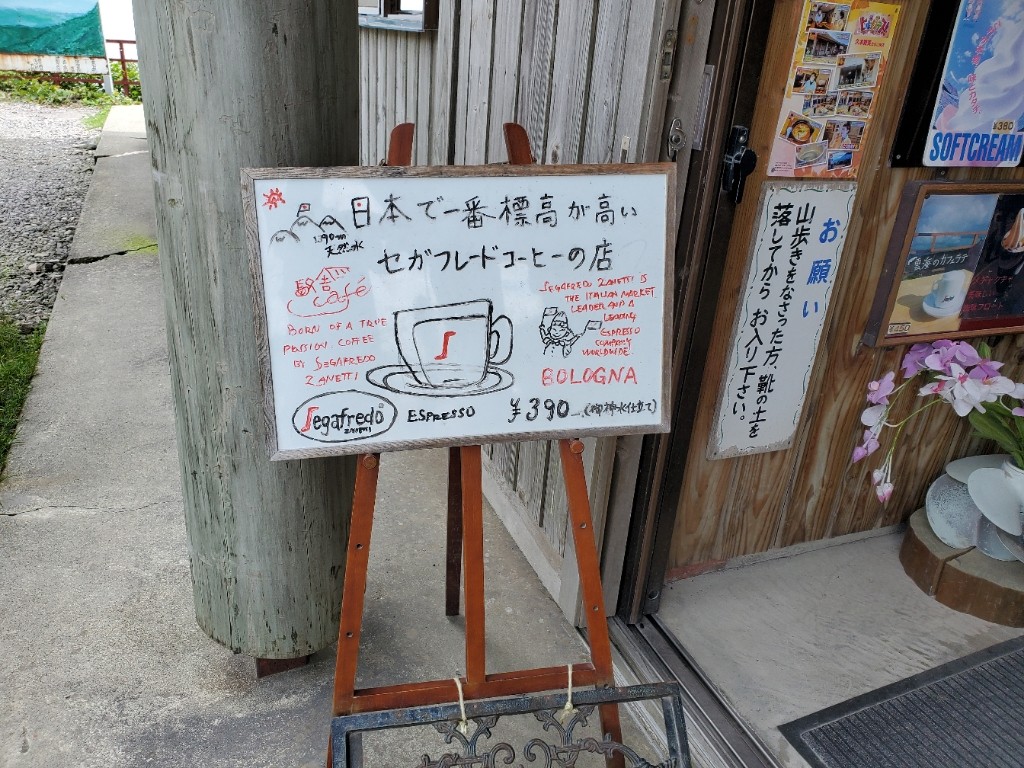 日本で一番標高が高い
天然水
セガフレードコーヒーの店
Café
BORN OF A TRUE
PASSION. COFFEE
BY SEGAFREDO
ZANETTI
SEGAFREDO ZANETTI IS
THE ITALIAN MARKET
LEADER AND A
LEADING
ESPRESSO
COMPANY
WORLDWIDE.
BOLOGNA
Segafredo
ZANETTI
ESPRESSO
¥390
(御神水仕立て)
お願い
山歩きをなさった方、靴の土を
落してから お入り下さい。
¥380
SOFTCREAM
雲海のカフェラテ